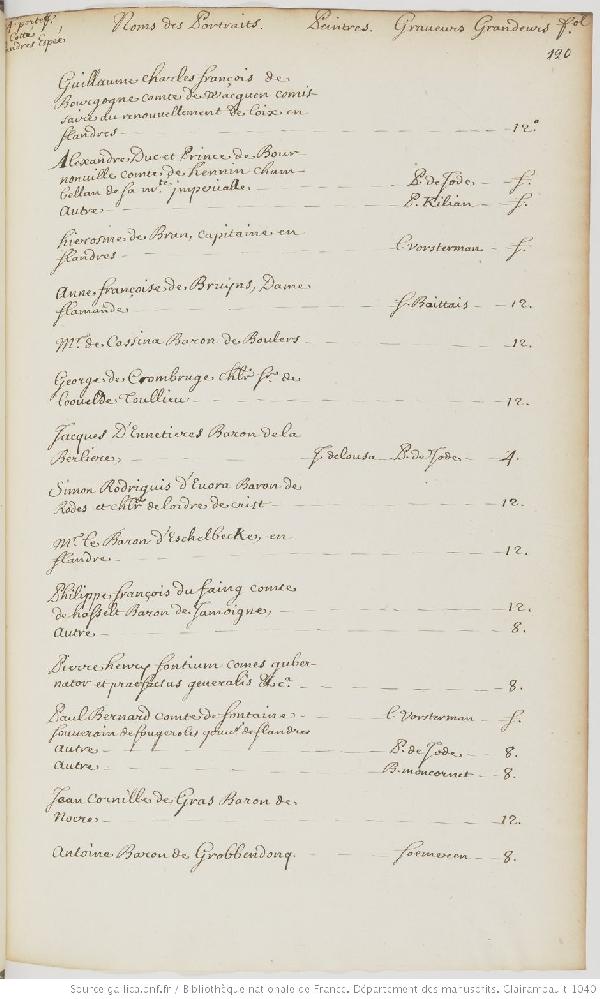 Noms des Portraits. Peintres. Graveurs Grandeurs fol
120
Guillaume charles françois de
Bourgogne comte de Wacquen comis-
saire au renouvellement de loix en
flandres 12.°
Alexandre Duc et Prince de Bour-
nonuille comte de hennin cham-
bellan de sa m.té imperialle P. de Jode f.
Autre P. Kilian f.
hierosme de Bran, capitaine en
flandres l. vorsterman f.
Anne françoise de Bruyns, Dame
flamande f. Baittais 12.
M.r de Cassina Baron de Boulers 12.
George de Crombruge chlr sr. de
Toullieu 12.
Jacques D'Ennetieres Baron de la
Berliere, J. delousa P. de Jode 4.
Simon Rodriguis d'Euora Baron de
Rodes et chlr de lordre de crist 12.
M.r le Baron d'Eschelbecke, en
flandre 12.
Philippe françois du faing comte
de hasselt Baron de Jamoigne, 12.
Autre 8.
Pierre henry fontium comes guber-
nator et praefectus generalis &c.a 8.
Paul Bernard comte de fontaine l. Vorsterman f.
souverain de fougerolis gouv.r de flandres
Autre P. de Jode 8.
Autre B. moncornet 8.
Jean Cornille de Gras Baron de
Nocre 12.
Antoine Baron de Grobbendonq. 8.
Source gallica.bnf.fr / Bibliothèque nationale de France. Département des manuscrits. Clairambault 1040